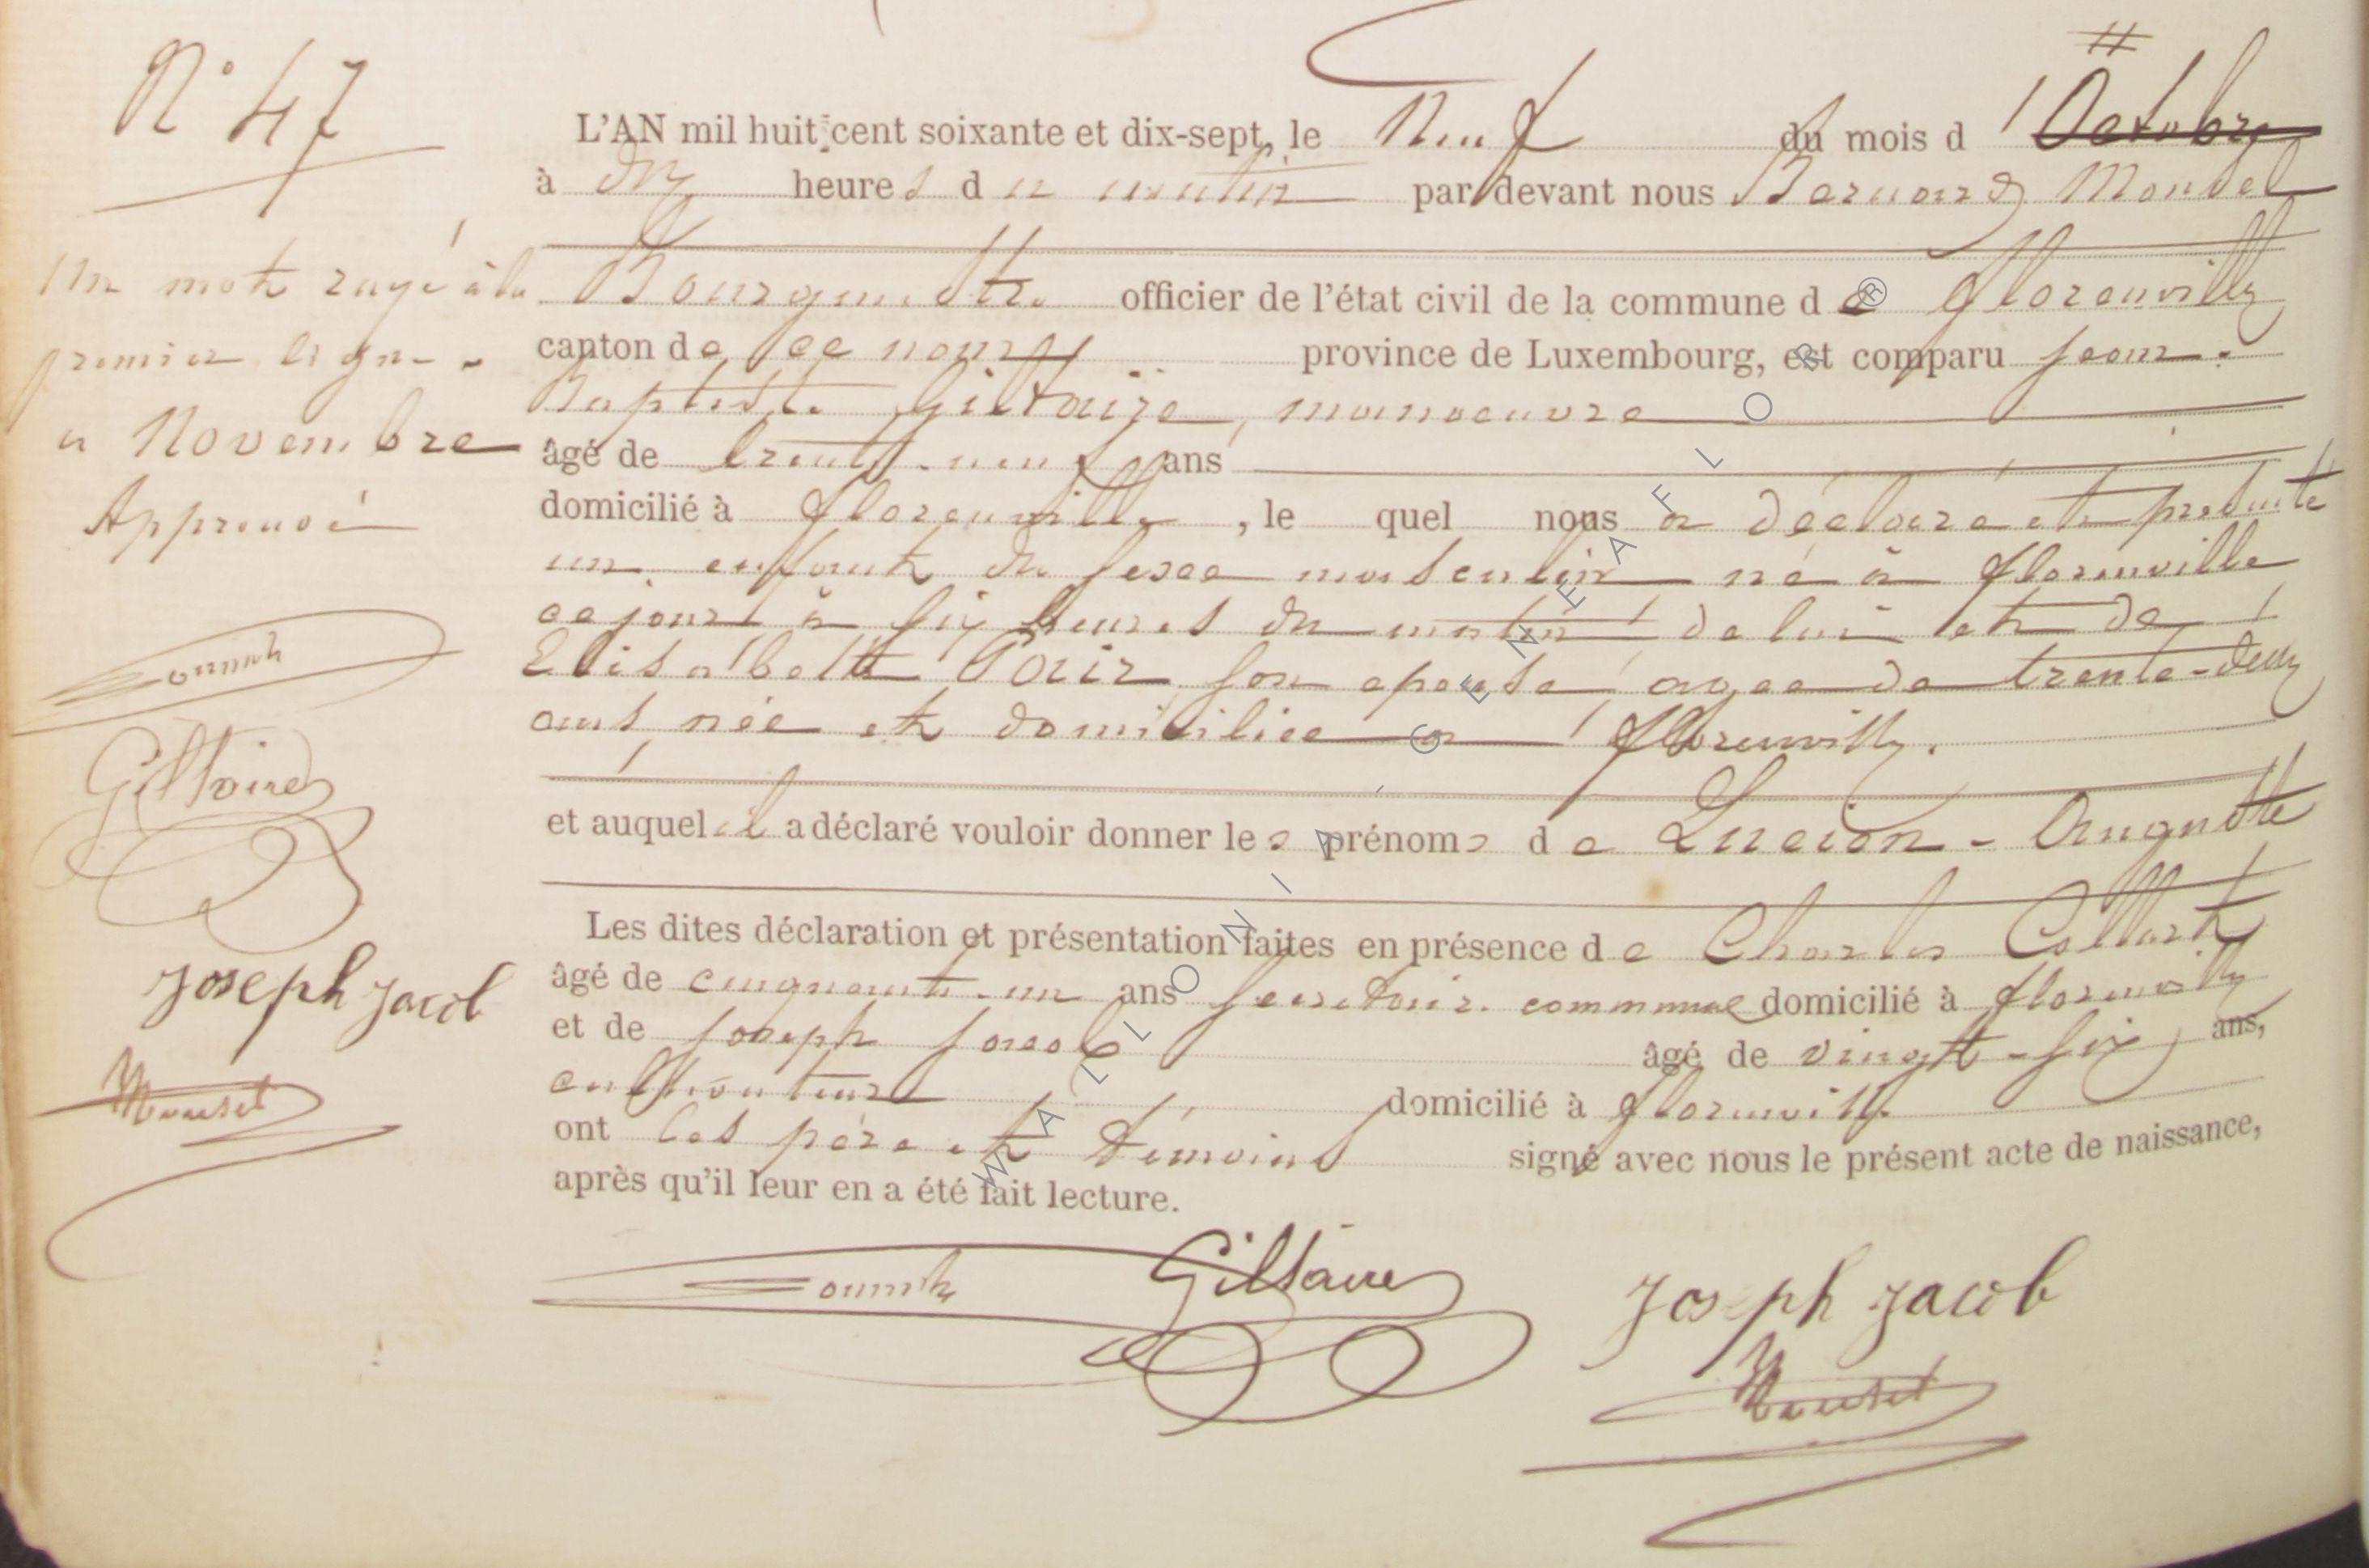 N° 47
L'AN mil huit cent soixante et dix-sept, le Neuf du mois d Octobre
à dix heures du matin par devant nous Bernard Mondel
Bourgmestre officier de l'état civil de la commune de Florenville
canton de ce nom province de Luxembourg, est comparu Jean
Baptiste Giltaire, manoeuvre
âgé de trente-neuf ans
domicilié à Florenville, le quel nous a déclaré et présenté
un enfant du sexe masculin né à Florenville
ce jour à six heures du matin de lui et de
Elisabeth son epouse agee de trente-deux
ans née et domiciliee a Florenville.
et auquel il a déclaré vouloir donner les prénoms de Lucien-Auguste
Les dites déclaration et présentation faites en présence de Charles Collart
âgé de cinquante-un ans Secretaire communal domicilié à Florenville
et de Joseph Jacob âgé de vingt-six ans,
cultivateur domicilié à Florenville
ont les père et témoins signé avec nous le présent acte de naissance,
après qu'il leur en a été fait lecture.
Giltaire Joseph Jacob
Un mot rayé à la
premier ligne
a Novembre
Approuvé
Giltaire
Joseph Jacob
WALLONIA, GENEAFLOR®